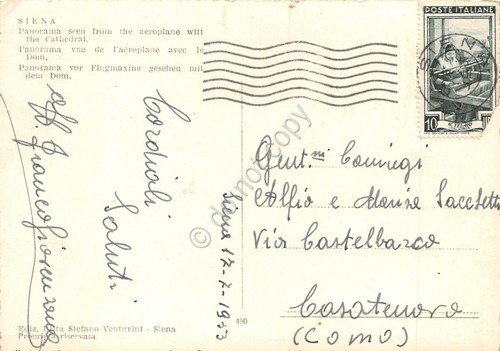 SIENA
Panorama seen from the aeroplane witt
the Cathedral.
Panorama vue de l'aéroplane avec le
Dom.
Panorama vor Flugmaxine gesehen mit
dem Dom.
Cordiali
Saluti
Siena 17-7-1953
Gent.mi Coniugi
Alfio e Marisa Sacchetti
Via Castelbarco
Casatenovo
(Como)
POSTE ITALIANE
SIENA
10
IL TELAIO
Ediz. Ditta Stefano Venturini - Siena
Proprietà riservata
490
© do not copy